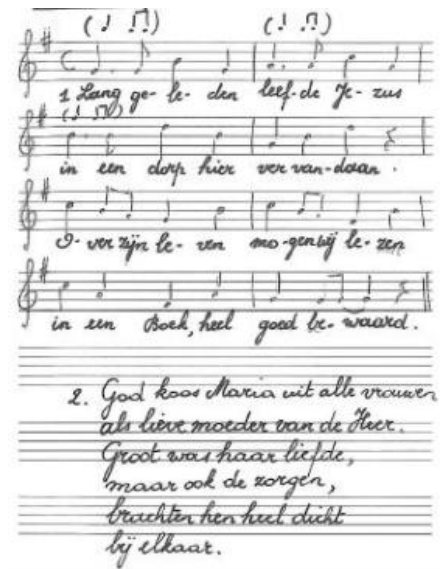 1 Lang ge- le- den leef- de Je- zus
in een dorp hier ver van- daan.
O- ver zijn le- ven mo- gen wij le- zen
in een Boek, heel goed be- waard.
2. God koos Maria uit alle vrouwen
als lieve moeder van de Heer.
Groot was haar liefde,
maar ook de zorgen,
brachten hen heel dicht
bij elkaar.